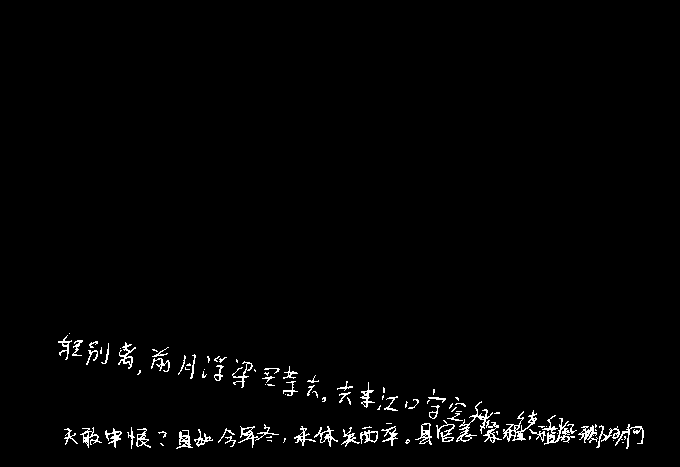 轻别离,前月浮梁买茶去。去来江口守空船,绕船
夫敢申恨?且如今年冬,未休关西卒。县官急索租,租